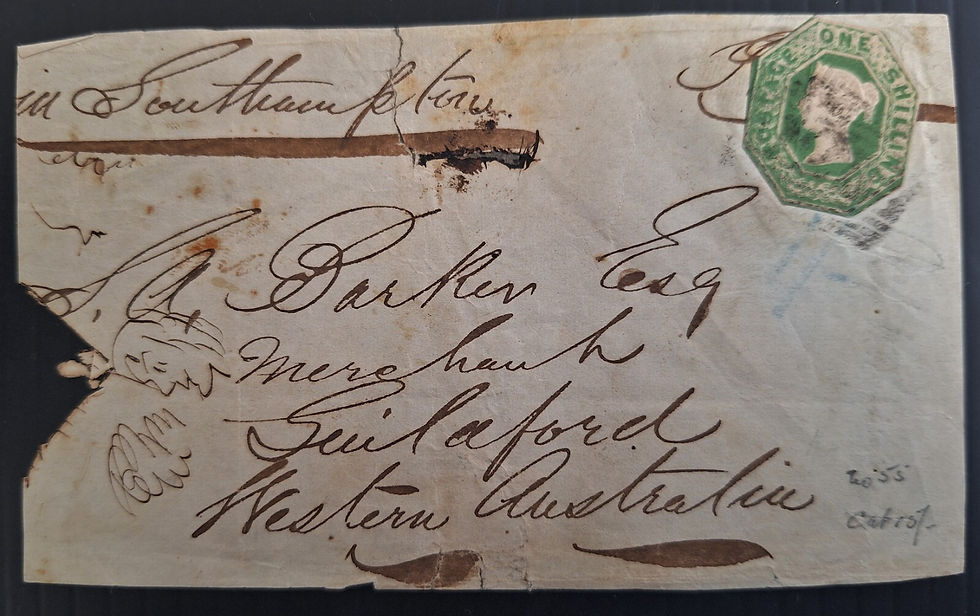 Southampton
POSTAGE ONE SHILLING
S. A. Barker Esq
Merchant
Guilaford
Western Australia
No 55
Cat 15/-